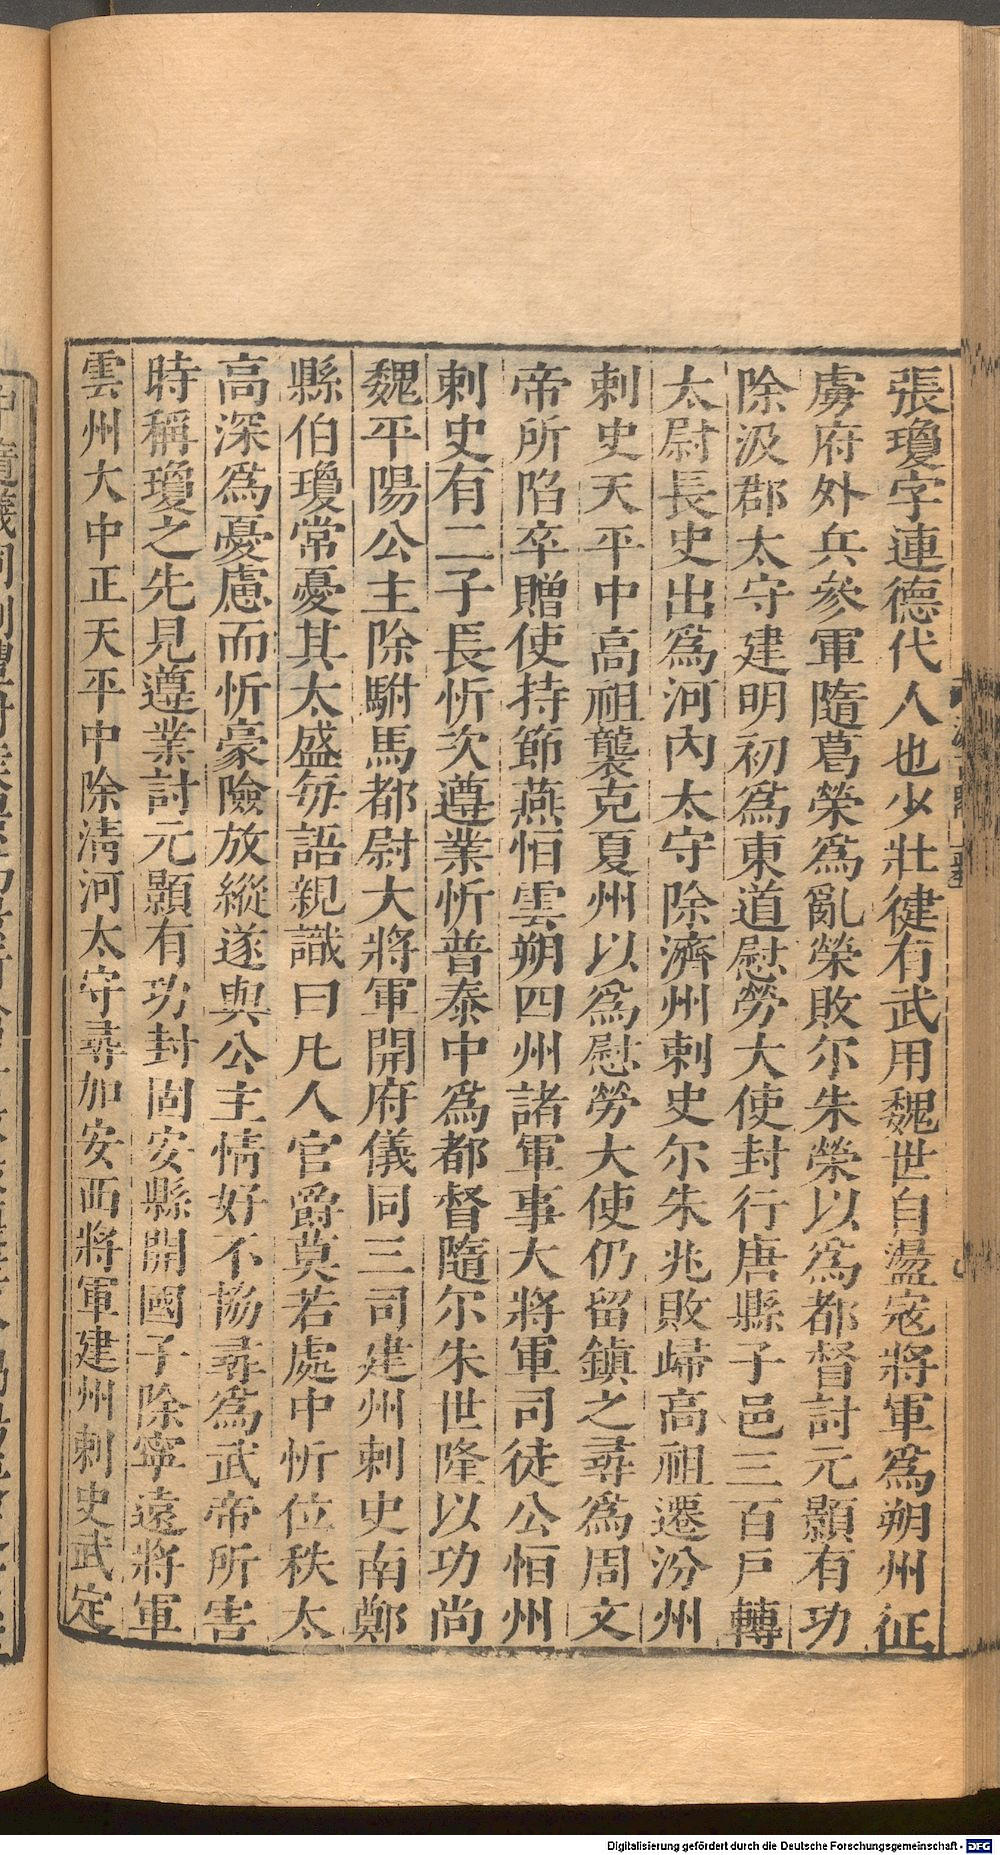 張瓊字連德代人也少壯健有武用魏世自盪寇將軍爲朔州征
虜府外兵參軍隨葛榮爲亂榮敗尔朱榮以爲都督討元顥有功
除汲郡太守建明初爲東道慰勞大使封行唐縣子邑三百戸轉
太尉長史出爲河内太守除濟州刺史尔朱兆敗歸高祖遷汾州
刺史天平中高祖襲克夏州以爲慰勞大使仍留鎮之尋爲周文
帝所陷卒贈使持節燕恒雲朔四州諸軍事大將軍司徒公恒州
刺史有二子長忻次遵業忻普泰中爲都督隨尔朱世隆以功尚
魏平陽公主除駙馬都尉大將軍開府儀同三司建州刺史南鄭
縣伯瓊常憂其太盛每語親識曰凡人官爵莫若處中忻位秩太
高深爲憂慮而忻豪險放縱遂與公主情好不協尋爲武帝所害
時稱瓊之先見遵業討元顥有功封固安縣開國子除寧遠將軍
雲州大中正天平中除清河太守尋加安西將軍建州刺史武定
Digitalisierung gefördert durch die Deutsche Forschungsgemeinschaft - DFG